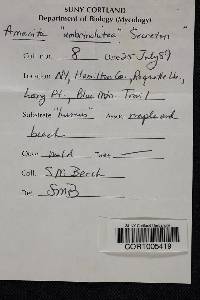 SUNY CORTLAND
Department of Biology (Mycology)
Amanita "umbrinolutea" Secretan
Coll. no. 8 Date 25 July 89
Location NY, Hamilton Co., Raquette Lk.,
Long Pt., Blue Mtn. Trail
Substrate "humus" maple and
beech
Odor mild Taste —
Coll. S.M. Beech
Det. SMB
CORT005419